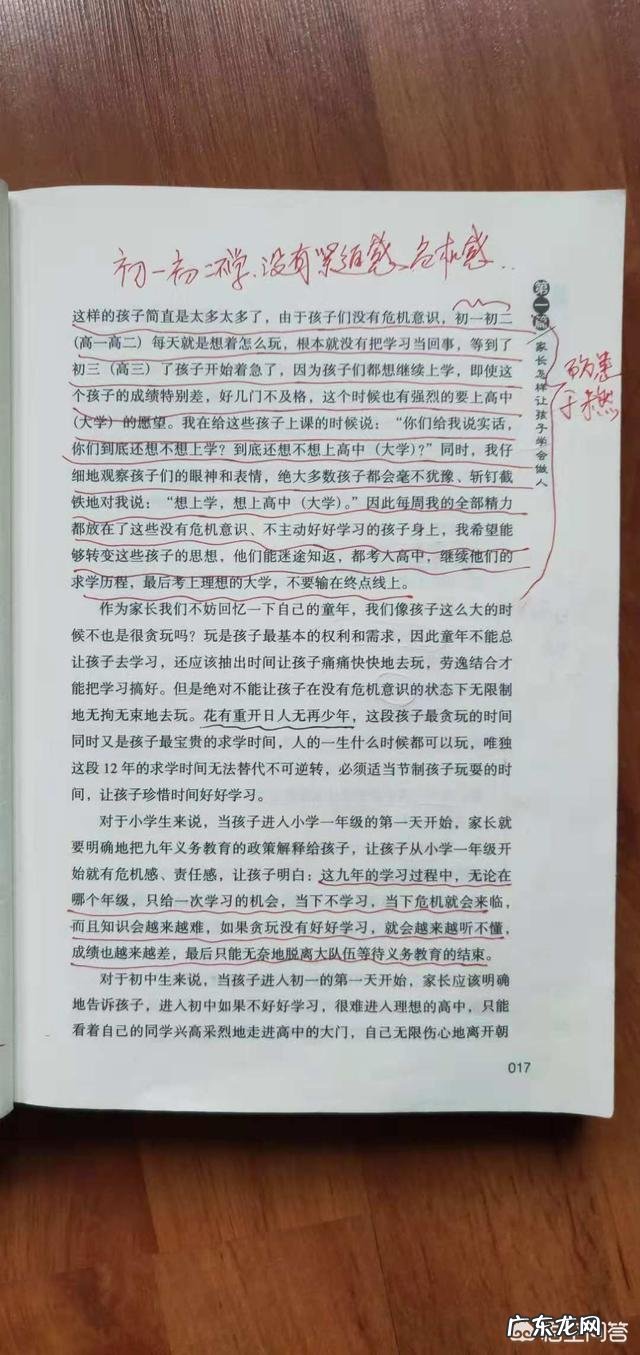 初一初二不学，没有紧迫感、危机感..
第一篇 家长怎样让孩子学会做人
防患于未燃
这样的孩子简直是太多太多了，由于孩子们没有危机意识，初一初二
（高一高二）每天就是想着怎么玩，根本就没有把学习当回事，等到了
初三（高三）了孩子开始着急了，因为孩子们都想继续上学，即使这
个孩子的成绩特别差，好几门不及格，这个时候也有强烈的要上高中
（大学）的愿望。我在给这些孩子上课的时候说：“你们给我说实话，
你们到底还想不想上学？到底还想不想上高中（大学）？”同时，我仔
细地观察孩子们的眼神和表情，绝大多数孩子都会毫不犹豫、斩钉截
铁地对我说：“想上学，想上高中（大学）。”因此每周我的全部精力
都放在了这些没有危机意识、不主动好好学习的孩子身上，我希望能
够转变这些孩子的思想，他们能迷途知返，都考入高中，继续他们的
求学历程，最后考上理想的大学，不要输在终点线上。
作为家长我们不妨回忆一下自己的童年，我们像孩子这么大的时
候不也是很贪玩吗？玩是孩子最基本的权利和需求，因此童年不能总
让孩子去学习，还应该抽出时间让孩子痛痛快快地去玩，劳逸结合才
能把学习搞好。但是绝对不能让孩子在没有危机意识的状态下无限制
地无拘无束地去玩。花有重开日人无再少年，这段孩子最贪玩的时间
同时又是孩子最宝贵的求学时间，人的一生什么时候都可以玩，唯独
这段 12 年的求学时间无法替代不可逆转，必须适当节制孩子玩耍的时
间，让孩子珍惜时间好好学习。
对于小学生来说，当孩子进入小学一年级的第一天开始，家长就
要明确地把九年义务教育的政策解释给孩子，让孩子从小学一年级开
始就有危机感、责任感，让孩子明白：这九年的学习过程中，无论在
哪个年级，只给一次学习的机会，当下不学习，当下危机就会来临，
而且知识会越来越难，如果贪玩没有好好学习，就会越来越听不懂，
成绩也越来越差，最后只能无奈地脱离大队伍等待义务教育的结束。
对于初中生来说，当孩子进入初一的第一天开始，家长应该明确
地告诉孩子，进入初中如果不好好学习，很难进入理想的高中，只能
看着自己的同学兴高采烈地走进高中的大门，自己无限伤心地离开朝
017
广东龙网